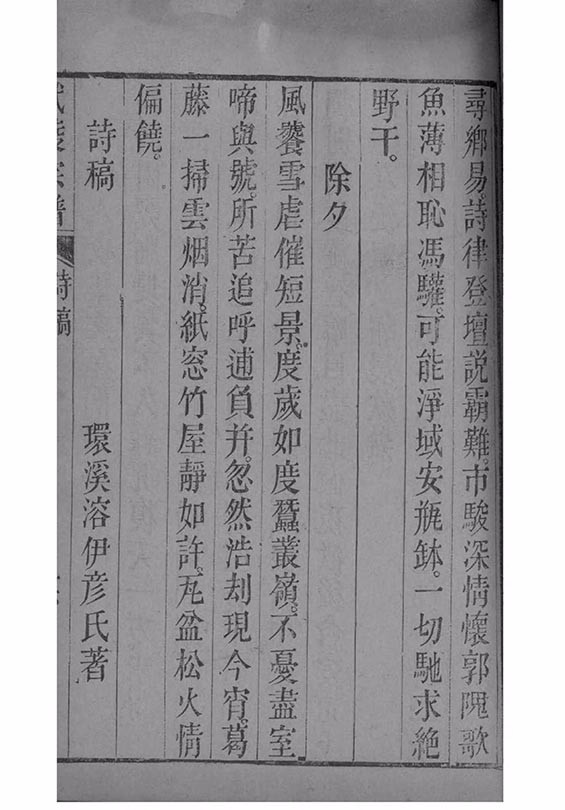 尋鄉易。詩律登壇說霸難。市駿深情懷郭隗。歌
魚薄相恥馮驩。可能淨域安瓶鉢。一切馳求絶
野干。
除夕
風饕雪虐催短景。度歲如度蠶叢嶺。不憂盡室
啼與號。所苦追呼逋負并。忽然浩刦現今宵。葛
藤一掃雲烟消。紙窓竹屋靜如許。瓦盆松火情
偏饒。
詩稿
環溪溶伊彦氏著
詩稿